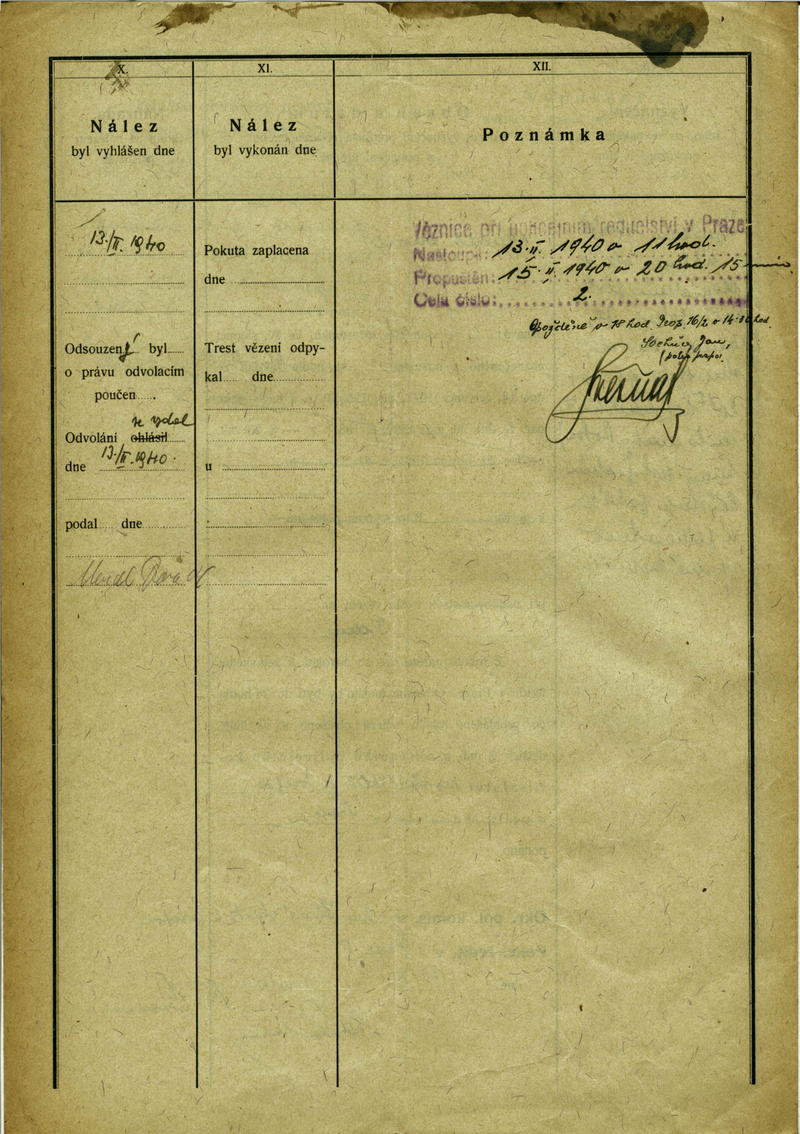 X.
Nález
byl vyhlášen dne
13./II. 1940
Odsouzený byl
o právu odvolacím
poučen
se vzdal
Odvolání ohlásil
dne 13./II. 1940.
podal dne
XI.
Nález
byl vykonán dne
Pokuta zaplacena
dne
Trest vězení odpy-
kal dne
u
XII.
Poznámka
Věznice při policejním ředitelství v Praze
Nastoupil: 13. II. 1940 o 11 hod.
Propuštěn: 15. II. 1940 o 20 hod. 15 min.
Cela číslo: 2.
Okr. pol. komis.